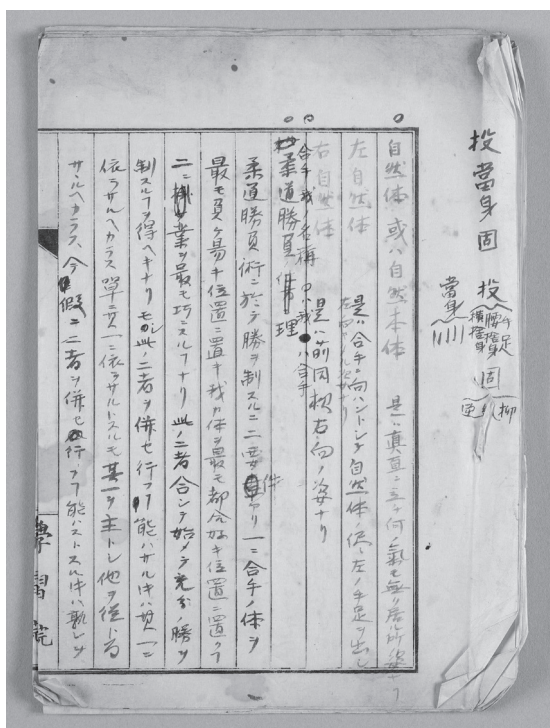 投當身固
投
手足
腰捨身
横捨身
固
當身
自然体 或ハ自然本体 是ハ真直ニ立チ何ノ氣モ無ク居所ノ姿ナリ
左自然体 是ハ合手ニ向ハントシテ自然体ノ侭ニ左ノ手足ヲ出シ
右自然体 是ハ前同様右向ノ姿ナリ
合手我ノ名稱 ○ハ我●ハ合手
柔道勝負ノ理
柔道勝負術ニ於テ勝ヲ制スルニ二要件アリ一ニ合手ノ体ヲ
最モ負ケ易キ位置ニ置キ我カ体ヲ最モ都合好キ位置ニ置クヿ
二ニ業ヲ最モ巧ニスルヿナリ此ノ二者合シテ始メテ充分ノ勝ヲ
制スルヿヲ得ヘキナリ此ノ二者ヲ併セ行フヿ能ハサル片ハ其一ニ
依ラサルヘカラス單ニ其一ニ依ラサルトスルモ其一ヲ主トシ他ヲ從トナ
サヽルヘカラス、今假ニ二者ヲ併セ行フヿ能ハストスル片ハ孰レヲ
學習院